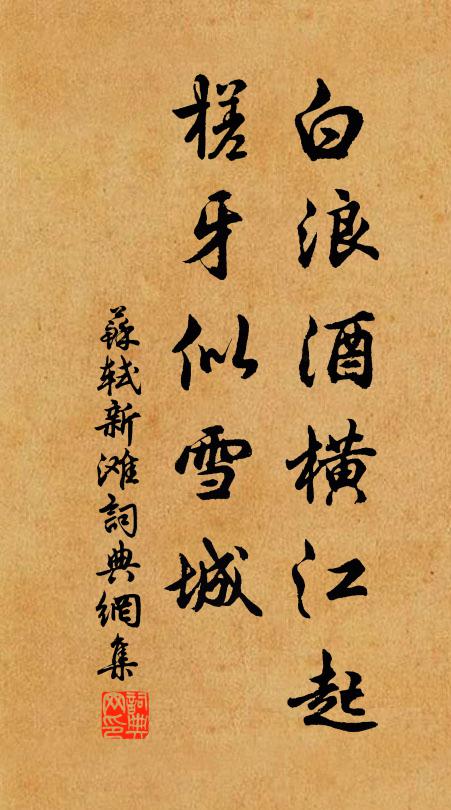 白浪酒横江起
槎牙似雪城
蘇軾新滩詞典網集
詞典网印